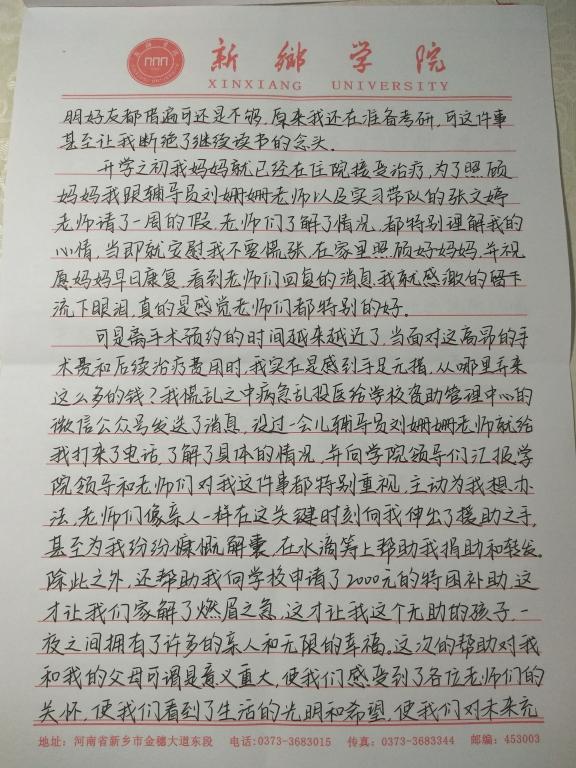 新鄉学院
XINXIANG UNIVERSITY
朋好友都借遍可还是不够，原来我还在准备考研，可这件事
甚至让我断绝了继续读书的念头。
开学之初我妈妈就已经在住院接受治疗，为了照顾
妈妈我跟辅导员刘姗姗老师以及实习带队的张文婷
老师请了一周的假，老师们了解了情况，都特别理解我的
心情，当即就安慰我不要慌张，在家里照顾好妈妈，并祝
愿妈妈早日康复，看到老师们回复的消息，我就感激的留下
流下眼泪，真的是感觉老师们都特别的好。
可是离手术预约的时间越来越近了，当面对这高昂的手
术费和后续治疗费用时，我实在是感到手足无措，从哪里弄来
这么多的钱？我慌乱之中病急乱投医给学校资助管理中心的
微信公众号发送了消息，没过一会儿辅导员刘姗姗老师就给
我打来了电话，了解了具体的情况，并向学院领导们汇报，学
院领导和老师们对我这件事都特别重视，主动为我想办
法，老师们像亲人一样在这关键时刻向我伸出了援助之手，
甚至为我纷纷慷慨解囊，在水滴筹上帮助我捐助和转发。
除此之外，还帮助我向学校申请了2000元的特困补助，这
才让我们家解了燃眉之急，这才让我这个无助的孩子，一
夜之间拥有了许多的亲人和无限的幸福。这次的帮助对我
和我的父母可谓是意义重大，使我们感受到了各位老师们的
关怀，使我们看到了生活的光明和希望，使我们对未来充
地址：河南省新乡市金穗大道东段 电话:0373-3683015 传真：0373-3683344 邮编：453003